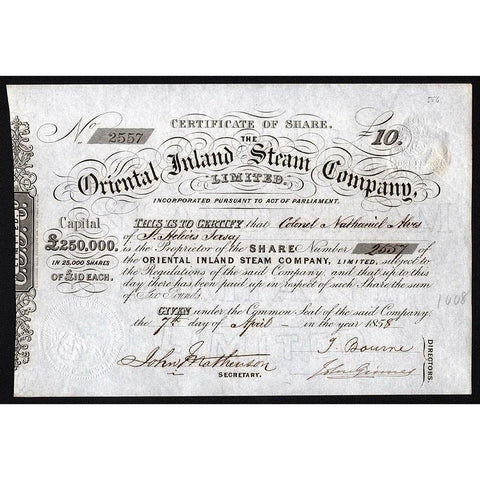 CERTIFICATE OF SHARE.
No 2557
£10.
THE
Oriental Inland Steam Company,
LIMITED.
INCORPORATED PURSUANT TO ACT OF PARLIAMENT.
Capital
£250,000.
IN 25,000 SHARES
OF £10 EACH.
THIS IS TO CERTIFY that Colonel Nathaniel Alves
of St Heliers Jersey
is the Proprietor of the SHARE Number 2557 of
the ORIENTAL INLAND STEAM COMPANY, LIMITED, subject to
the Regulations of the said Company, and that up to this
day there has been paid up in respect of such Share the sum
of Pounds.
GIVEN under the Common Seal of the said Company,
the 7th day of April in the year 1858
John Mathewson
SECRETARY.
J. Bourne
DIRECTORS.
1008